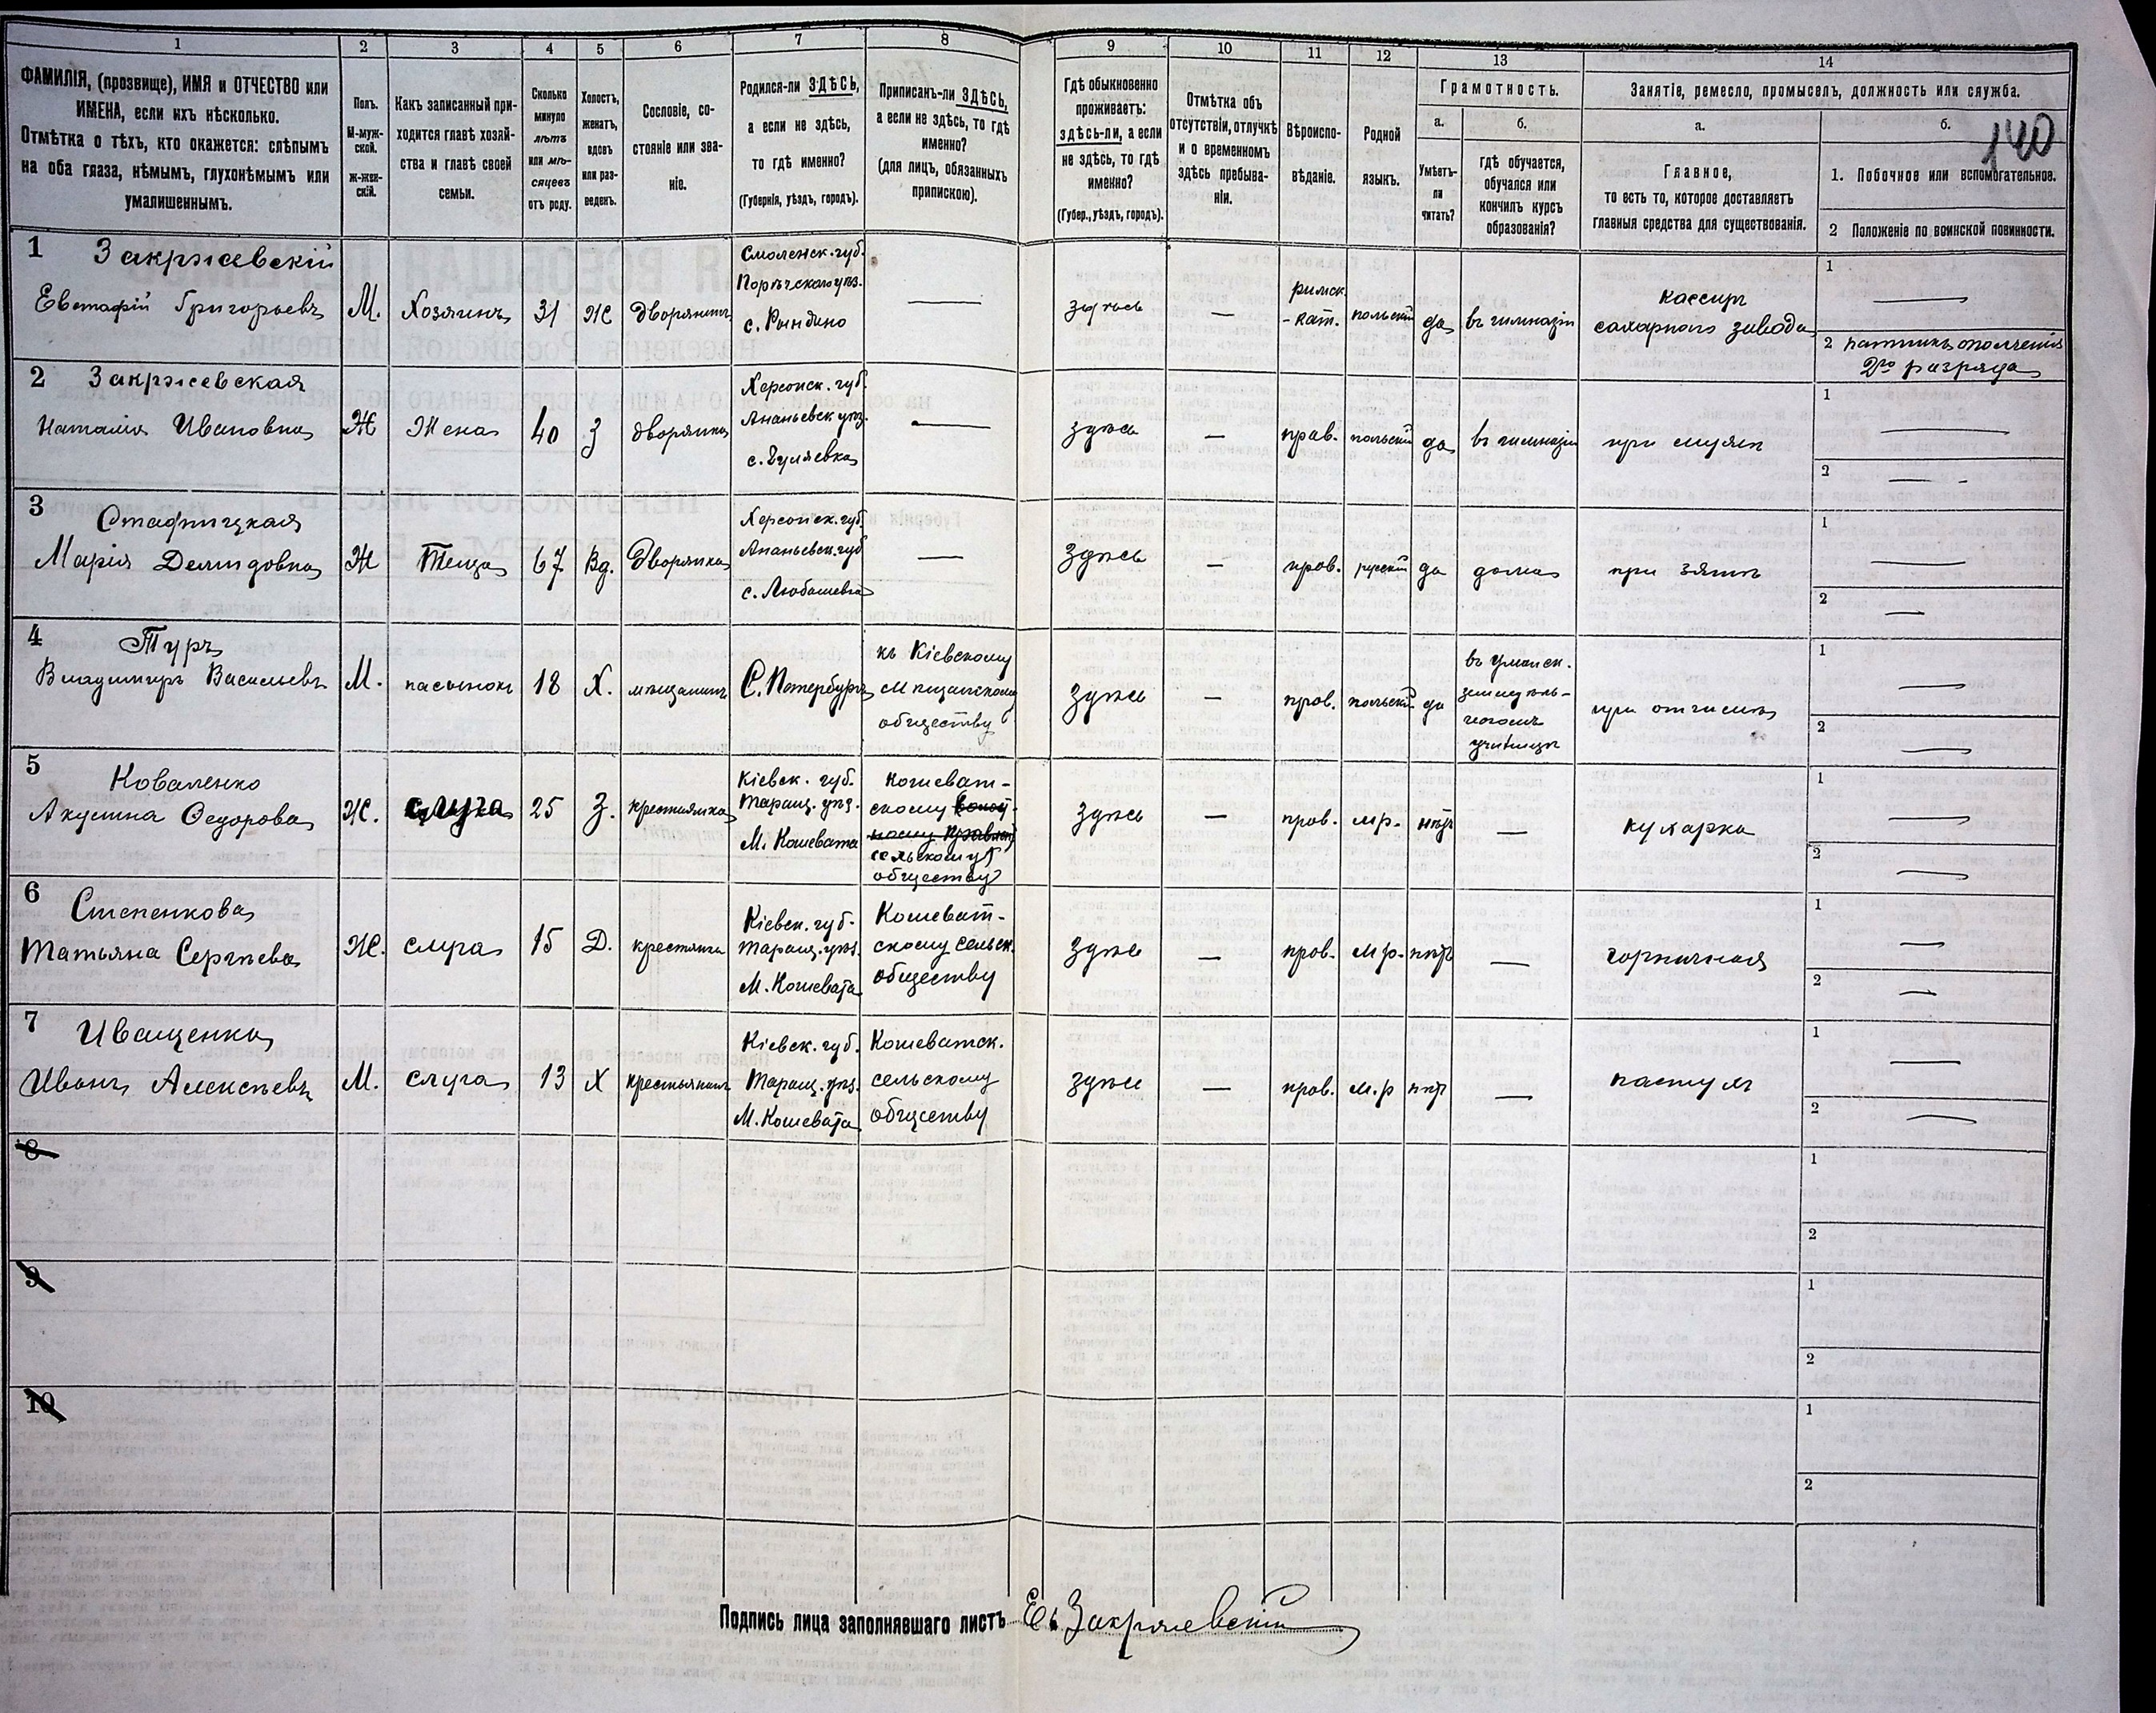 1 2 3 4 5 6 7 8 9 10 11 12 13 14
ФАМИЛІЯ, (прозвище), ИМЯ и ОТЧЕСТВО или
ИМЕНА, если ихъ нѣсколько.
Отмѣтка о тѣхъ, кто окажется: слѣпымъ
на оба глаза, нѣмымъ, глухонѣмымъ или
умалишеннымъ.
Полъ.
М-муж-
ской.
Ж-жен-
скій.
Какъ записанный при-
ходится главѣ хозяй-
ства и главѣ своей
семьи.
Сколько
минуло
лѣтъ
или мѣ-
сяцевъ
отъ роду.
Холостъ,
женатъ,
вдовъ
или раз-
веденъ.
Сословіе, со-
стояніе или зва-
ніе.
Родился-ли ЗДѢСЬ,
а если не здѣсь,
то гдѣ именно?
(Губернія, уѣздъ, городъ).
Приписанъ-ли ЗДѢСЬ,
а если не здѣсь, то гдѣ
именно?
(для лицъ, обязанныхъ
припискою).
Гдѣ обыкновенно
проживаетъ:
здѣсь-ли, а если
не здѣсь, то гдѣ
именно?
(Губер., уѣздъ, городъ).
Отмѣтка объ
отсутствіи, отлучкѣ
и о временномъ
здѣсь пребыва-
ніи.
Вѣроиспо-
вѣданіе.
Родной
языкъ.
Грамотность.
а.
Умѣетъ-
ли
читать?
б.
гдѣ обучается,
обучался или
кончилъ курсъ
образованія?
Занятіе, ремесло, промыселъ, должность или служба.
а.
Главное,
то есть то, которое доставляетъ
главныя средства для существованія.
б.
140
1. Побочное или вспомогательное.
2 Положеніе по воинской повинности.
1 Закржевскій
Евстафій Григорьевъ
М.
Хозяинъ
31
Ж
дворянинъ
Смоленск. губ.
Порѣчскаго уѣз.
с. Рындино
—
здѣсь
—
римск.
-кат.
польскій
да
въ гимназіи
кассиръ
сахарнаго завода
1 —
2 ратникъ ополченія
2го разряда
2 Закржевская
Наталія Ивановна
Ж
Жена
40
З
дворянка
Херсонск. губ.
Ананьевск уѣз.
—
здѣсь
—
прав.
польскій
да
въ гимназіи
при мужѣ
1 —
2 —
3
Марія Демидовна
Ж
Теща
67
Вд.
Дворянка
Херсонск. губ.
Ананьевск. губ
с. Любашевка
—
здѣсь
—
прав.
русскій
да
дома
при зятѣ
1 —
2 —
4 Туръ
Владимиръ Васильевъ
М.
пасынокъ
18
Х.
мѣщанинъ
С. Петербургъ
къ Кіевскому
Мѣщанскому
обществу
здѣсь
—
прав.
польскій
да
въ Уманск.
земледѣль-
ческомъ
училищѣ
при отчимѣ
1 —
2 —
5 Коваленко
Акулина Ѳедорова
Ж.
слуга
25
З.
крестьянка
Кіевск. губ.
Таращ. уѣз.
М. Кошевата
Кошеват-
скому
сельскому
обществу
здѣсь
—
прав.
мр.
нѣтъ
—
кухарка
1 —
2 —
6 Степенкова
Татьяна Сергѣева
Ж.
слуга
15
Д.
крестянка
Кіевск. губ.
Таращ. уѣз.
М. Кошевата
Кошеват-
скому сельск.
обществу
здѣсь
—
прав.
м р.
нѣтъ
—
горничная
1 —
2 —
7 Иващенко
Иванъ Алексѣевъ
М.
слуга
13
Х
крестьянинъ
Кіевск. губ.
Таращ. уѣз.
М. Кошевата
Кошеватск.
сельскому
обществу
здѣсь
—
прав.
м.р
нѣтъ
—
пастухъ
1 —
2 —
8
1
2
9
1
2
10
1
2
Подпись лица заполнявшаго листъ Ев. Закржевскій